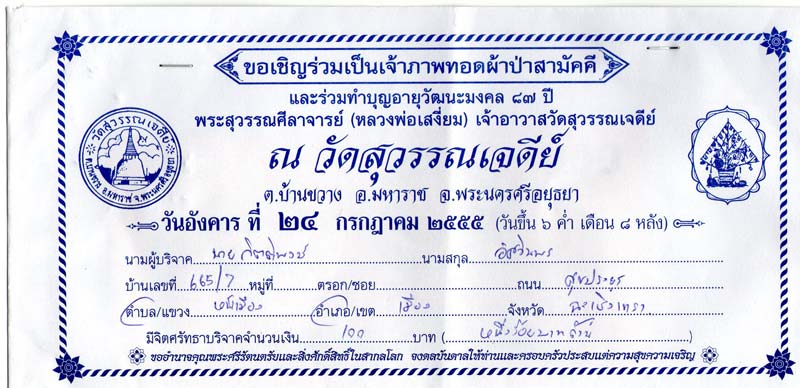 ขอเชิญร่วมเป็นเจ้าภาพทอดผ้าป่าสามัคคี
และร่วมทำบุญอายุวัฒนะมงคล ๘๗ ปี
พระสุวรรณศีลาจารย์ (หลวงพ่อเสงี่ยม) เจ้าอาวาสวัดสุวรรณเจดีย์
วัดสุวรรณเจดีย์
ต.บ้านขวาง อ.มหาราช จ.พระนครศรีอยุธยา
ณ วัดสุวรรณเจดีย์
ต.บ้านขวาง อ.มหาราช จ.พระนครศรีอยุธยา
วันอังคาร ที่ ๒๔ กรกฎาคม ๒๕๕๕ (วันขึ้น ๖ ค่ำ เดือน ๘ หลัง)
นามผู้บริจาค นาย กิตติพงษ์ นามสกุล
บ้านเลขที่ 665/7 หมู่ที่ ตรอก/ซอย ถนน ศุขประยูร
ตำบล/แขวง หน้าเมือง อำเภอ/เขต เมือง จังหวัด ฉะเชิงเทรา
มีจิตศรัทธาบริจาคจำนวนเงิน 100 บาท (หนึ่งร้อยบาทถ้วน)
ขออำนาจคุณพระศรีรัตนตรัยและสิ่งศักดิ์สิทธิ์ในสากลโลก จงดลบันดาลให้ท่านและครอบครัวประสบแต่ความสุขความเจริญ